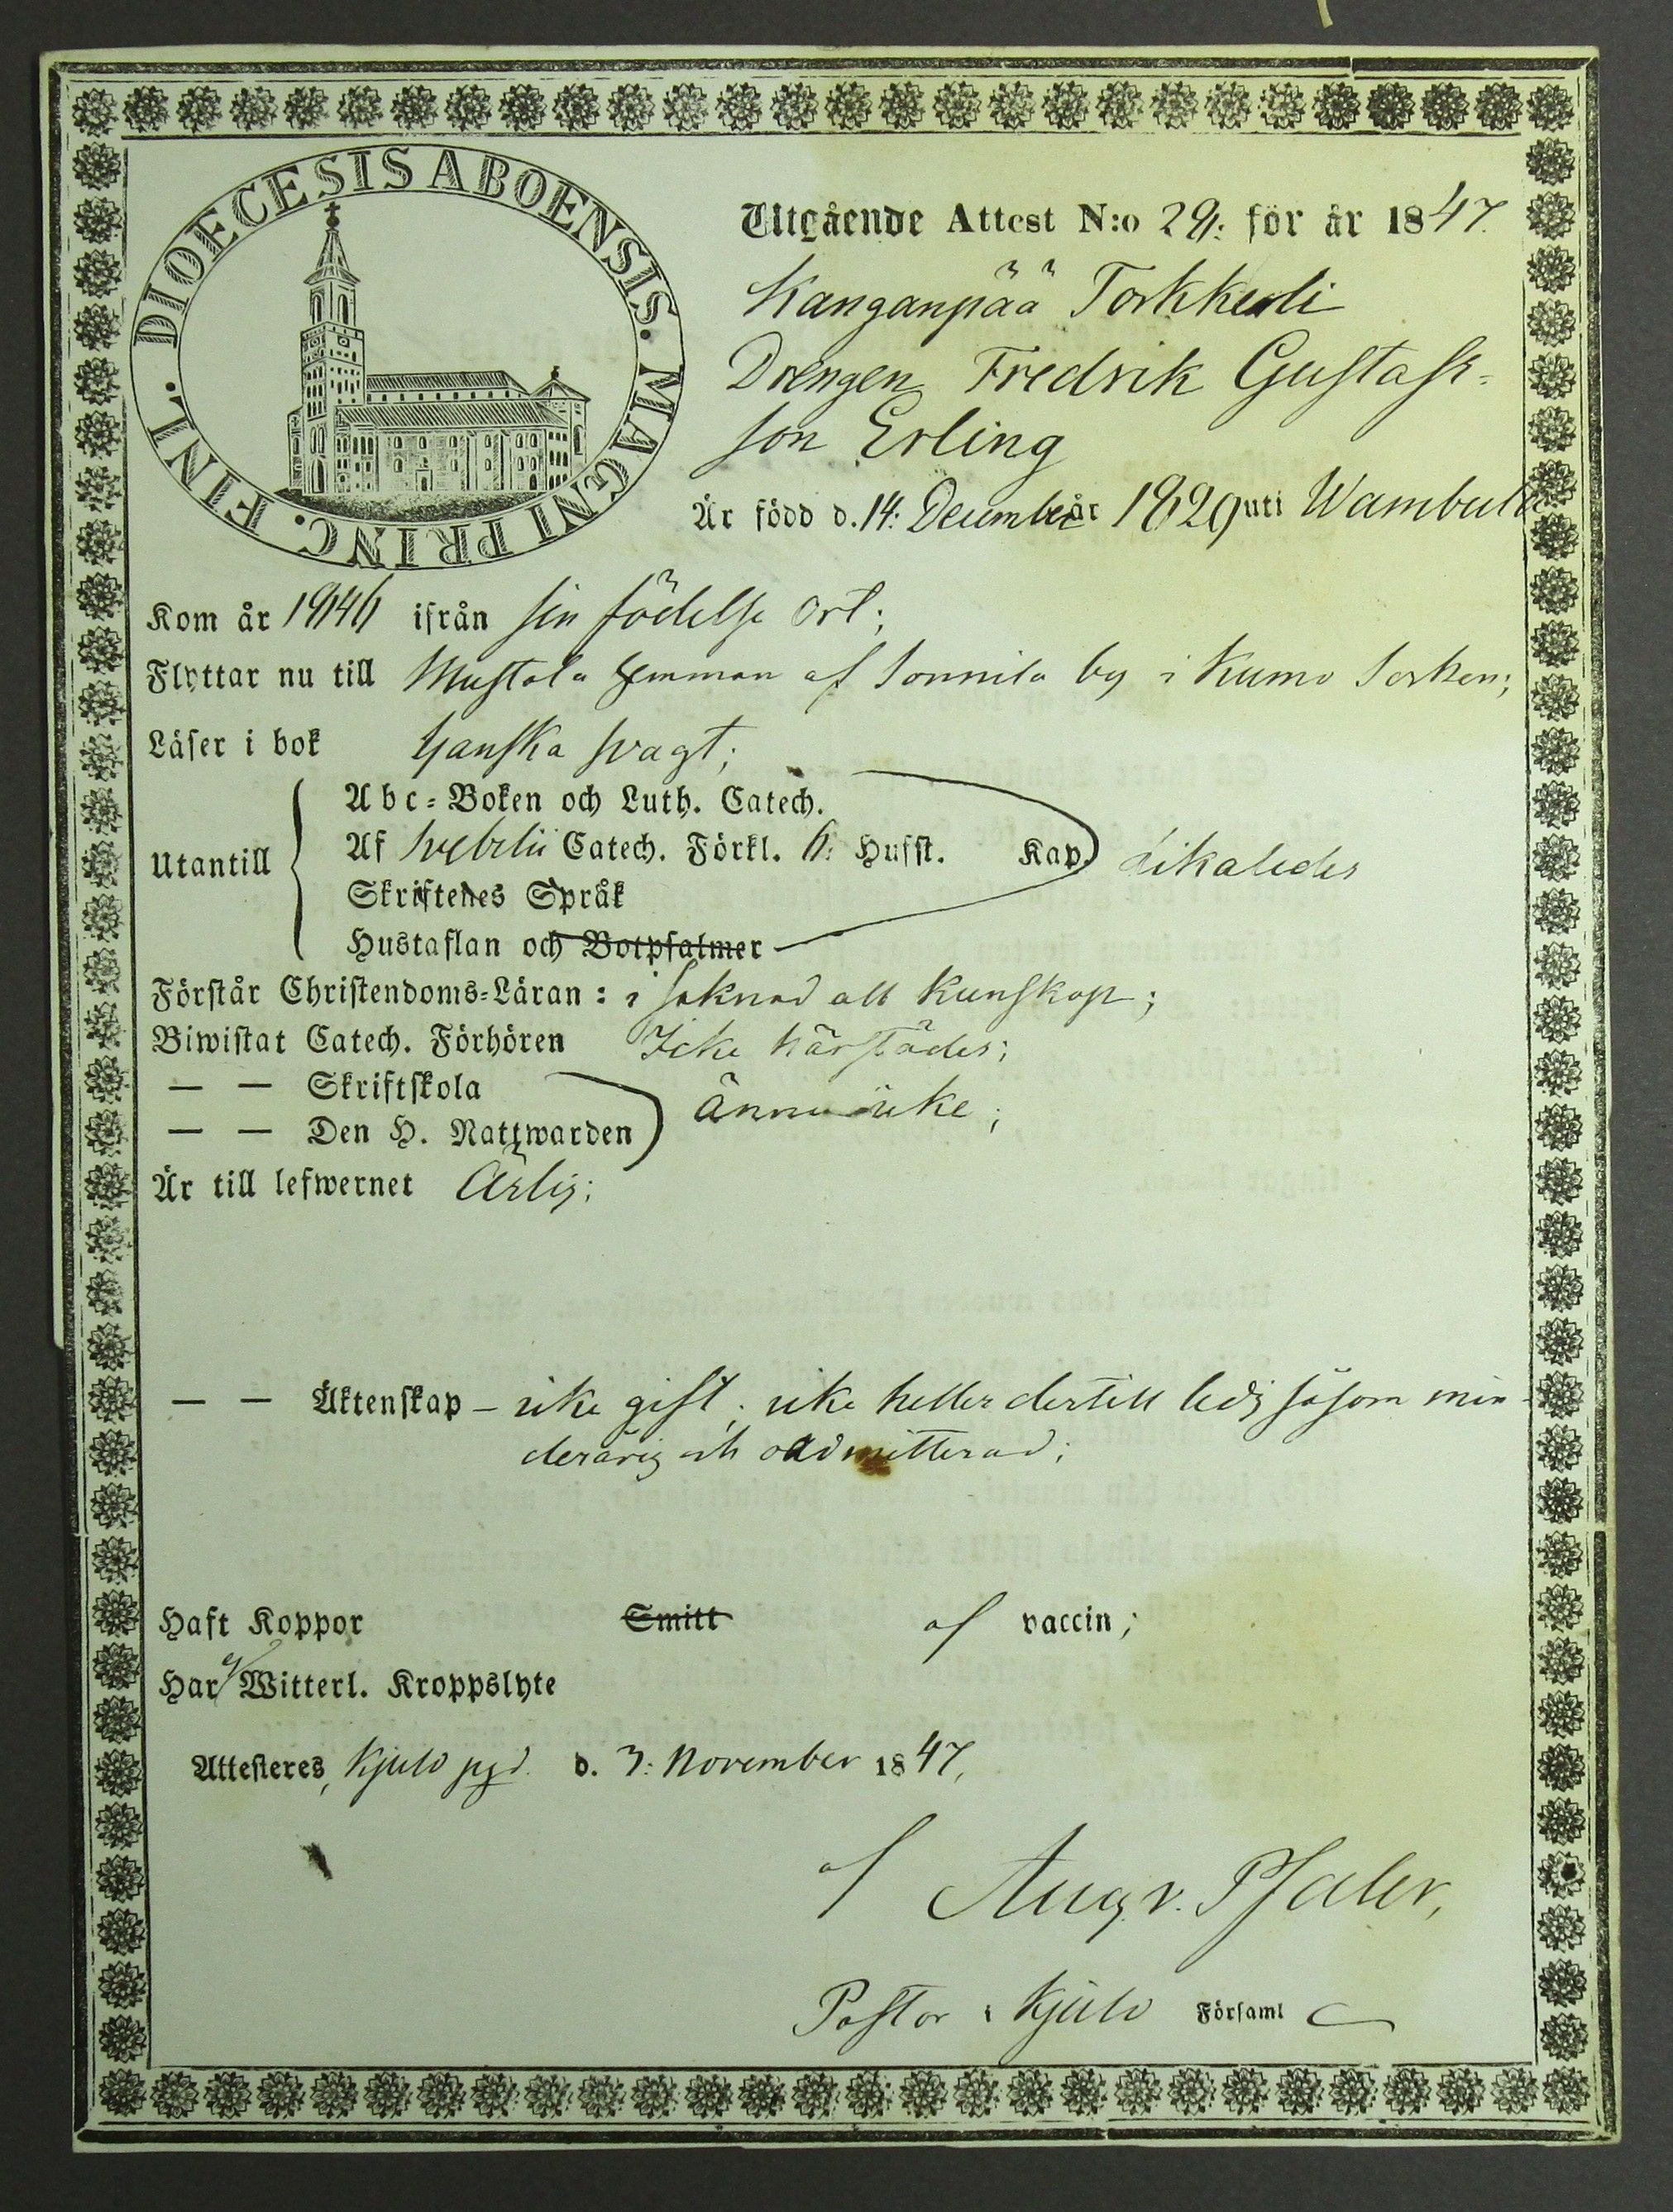 DIOECESIS ABOENSIS. MAGNI PRINC. FINL.
Utgående Attest N:o 29: för år 1847.
Kanganpää Torkkeli
Drengen Fredrik Gustafs-
son Erling
Är född d. 14: December år 1829 uti Wambula
Kom år 1846 ifrån sin födelse ort;
Flyttar nu till Mustola hemman af Sonnila by i Kumo Socken;
Läser i bok Ganska svagt;
Utantill
Abc-Boken och Luth. Catech.
Af Svebelii Catech. Förkl. 6: Husst. Kap. Likaledes
Skriftenes Språk
Hustaflan och Botpsalmer
Förstår Christendoms-Läran: i saknad all kunskap;
Biwistat Catech. Förhören Icke härstädes;
— — Skriftskola
— — Den H. Nattwarden ännu icke;
Är till lefwernet Ärlig;
— — Äktenskap - icke gift; icke heller dertill ledig såsom min-
derårig och oadmitterad;
Haft Koppor Smitt af vaccin;
Har ej Witterl. Kroppslyte
Attesteres, Kjulo pgd. d. 3: November 1847,
af Aug. v. Pfaler,
Pastor i Kjulo Församl